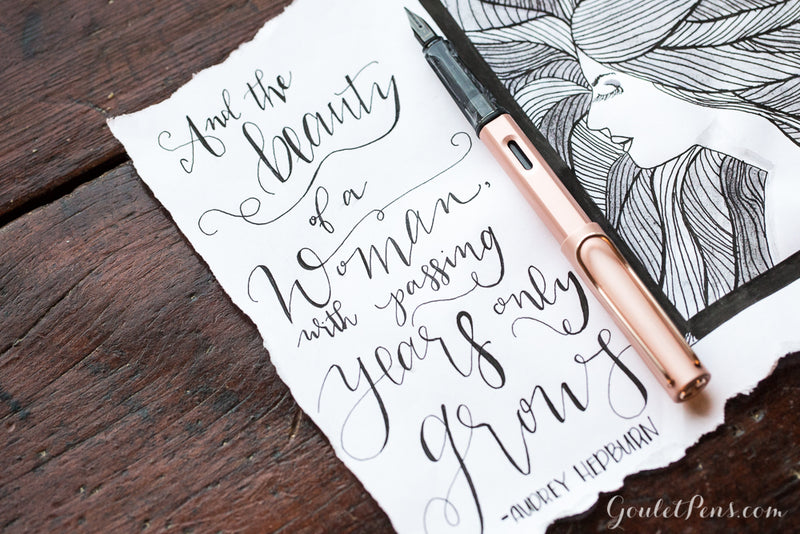 And the
beauty
of a
Woman,
with passing
years only
grows
-AUDREY HEPBURN
GouletPens.com